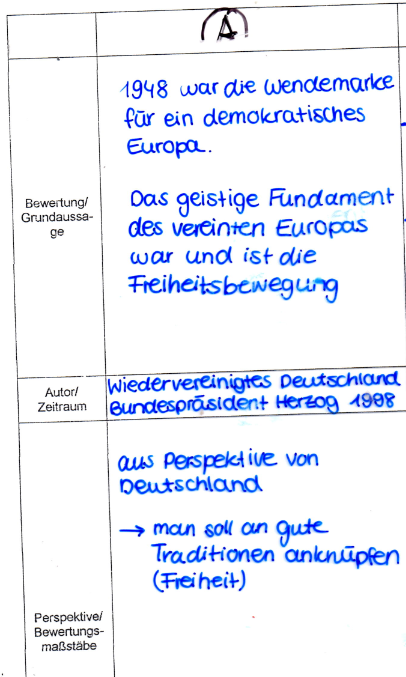 A
Bewertung/
Grundaussa-
ge
1948 war die Wendemarke
für ein demokratisches
Europa.
Das geistige Fundament
des vereinten Europas
war und ist die
Freiheitsbewegung
Autor/
Zeitraum
Wiedervereinigtes Deutschland
Bundespräsident Herzog 1998
Perspektive/
Bewertungs-
maßstäbe
aus Perspektive von
Deutschland
→ man soll an gute
Traditionen anknüpfen
(Freiheit)